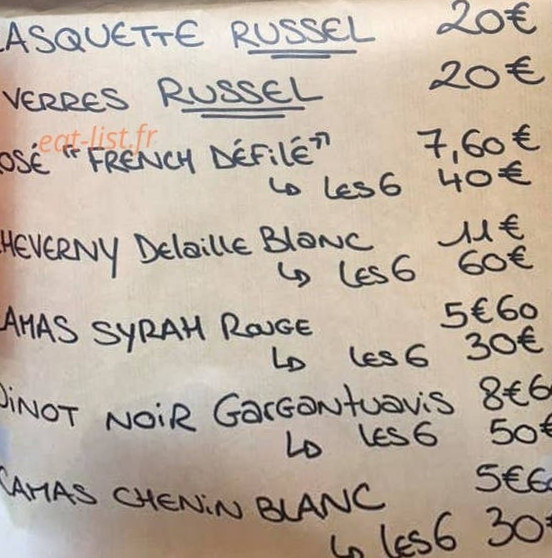 ASQUETTE RUSSEL 20€
VERRES RUSSEL 20€
eat-list.fr
OSÉ "FRENCH DÉFILÉ" 7,60€
↳ LES 6 40€
HEVERNY Delaille Blanc 11€
↳ les 6 60€
AMAS SYRAH ROUGE 5€60
↳ les 6 30€
PINOT NOIR Gargantuavis 8€6
↳ LES 6 50€
CAMAS CHENIN BLANC 5€60
↳ les 6 30€